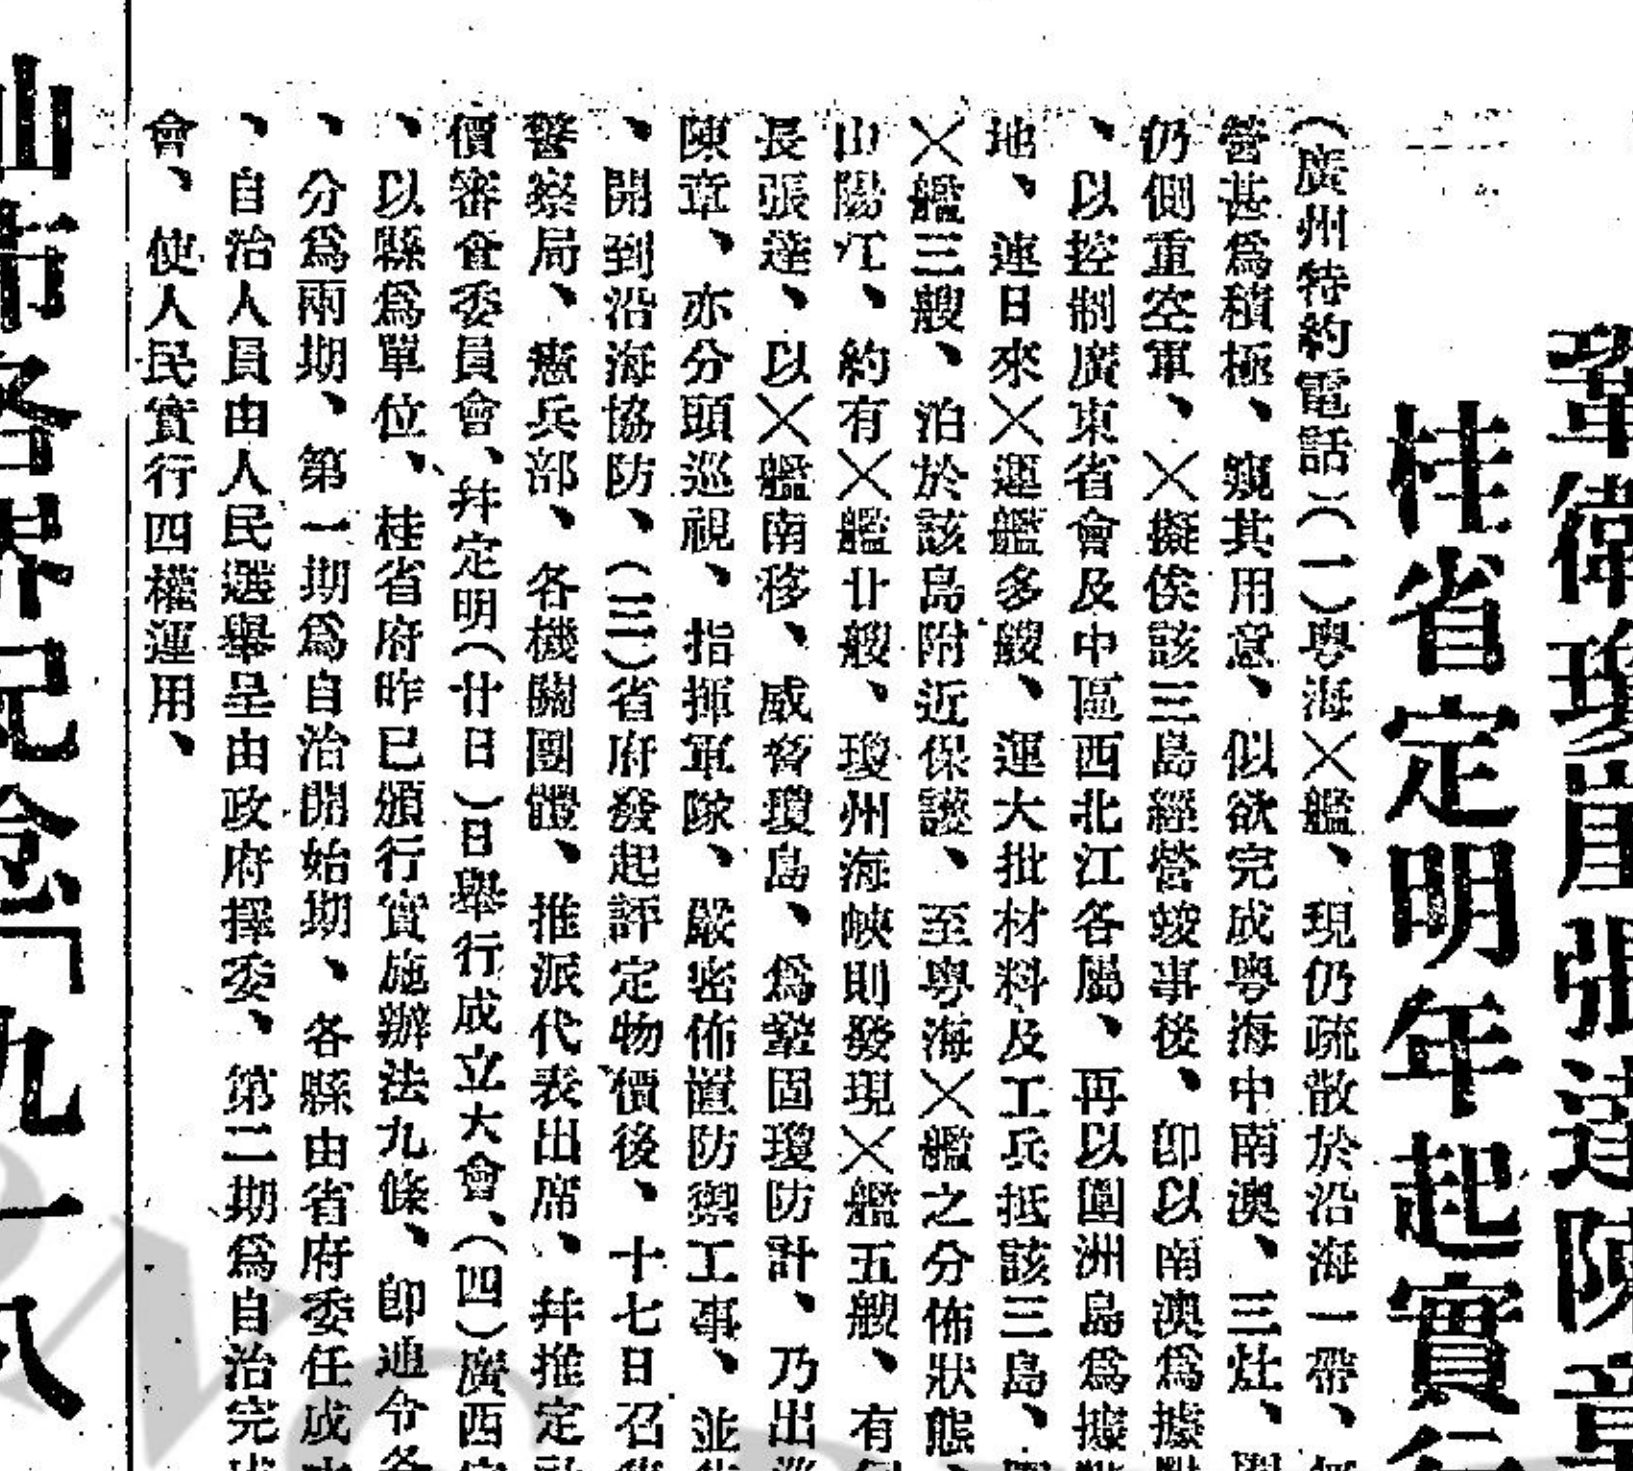 鞏衛瓊崖張達陳章
桂省定明年起實行
(廣州特約電話)(一)粵海×艦、現仍疏散於沿海一帶、
營甚為積極、窺其用意、似欲完成粵海中南澳、三灶、
仍側重空軍、×擬俟該三島經營竣事後、卽以南澳為據
、以控制廣東省會及中區西北江各屬、再以圍洲島為據
地、連日來×運艦多艘、運大批材料及工兵抵該三島、
×艦三艘、泊於該島附近保護、至粵海×艦之分佈狀態、
山陽江、約有×艦廿艘、瓊州海峽則發現×艦五艘、有
長張達、以×艦南移、威脅瓊島、為鞏固瓊防計、乃出
陳章、亦分頭巡視、指揮軍隊、嚴密佈置防禦工事、並
、開到沿海協防、(三)省府發起評定物價後、十七日召
警察局、憲兵部、各機關團體、推派代表出席、并推定
價審查委員會、并定明(廿日)日舉行成立大會、(四)廣西
、以縣為單位、桂省府昨已頒行實施辦法九條、卽通令各
、分為兩期、第一期為自治開始期、各縣由省府委任成
、自治人員由人民選舉呈由政府擇委、第二期為自治完
會、使人民實行四權運用、
汕市各界紀念「九一八